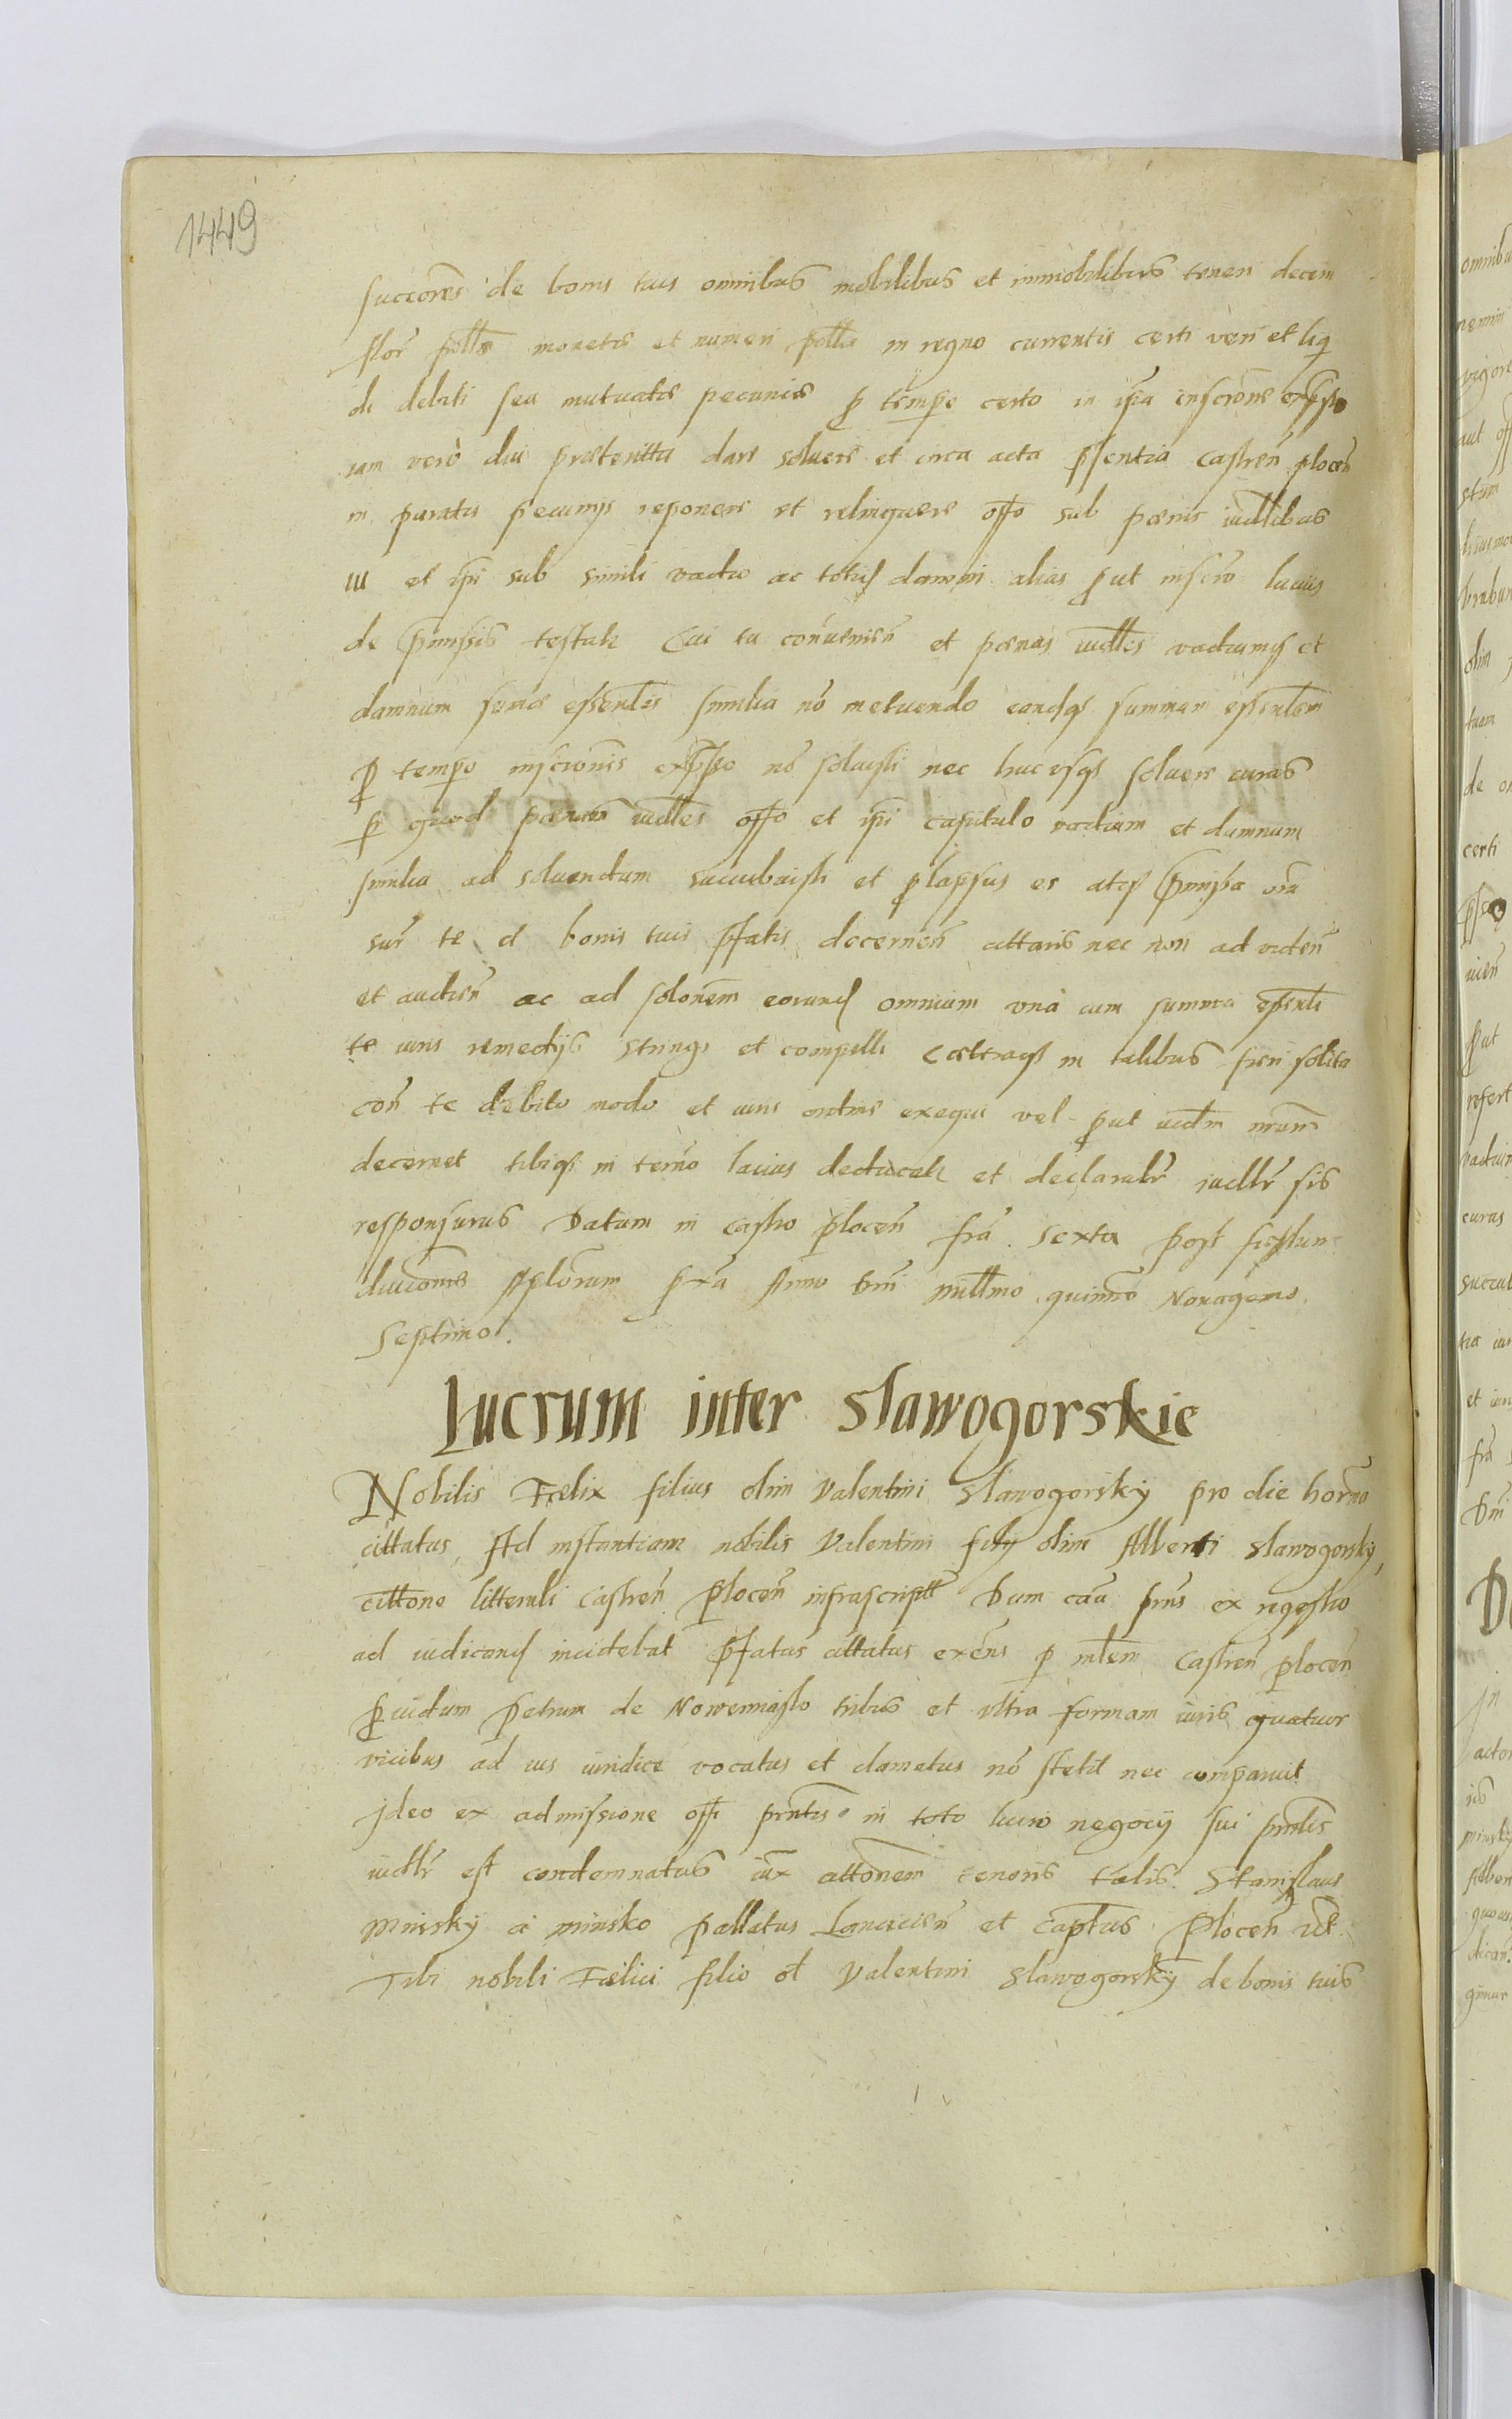 1449
succores de bonis tuis omnibus mobilibus et immobilibus teneri decem
flor pollis monetae et numeri pollis in regno currentis certi veri et liq
di debiti seu mutuatae pecuniae p tempe certo in ipa inscrone expsso
iam vero diu praeteritta dare solvere et circa acta pssentia Castren plocen
in paratis pecuniis reponere et relinquere offo sub poenis iudllibus
iii et ipi sub simili vadio ac totis damni alias put inscro lacius
de pmissis testatr Cui tu convenien et poenas iudlles vadiumq et
damnum summae essentlis similia no metuendo eandq summam essentlem
p tempe inscronis expsso no solvisti nec hucusq solvere curas
p quod poenam iudlles offo et ipi capitulo vadium et damnum
similia ad solvendum succubuisti et plapsus es atq pmissa ora
sur te et bonis tuis pfatis decernen cittaris nec non ad viden
et audien ac ad solonem eorundq omnium una cum summa essentli
te iuris remedys stringi et compelli Caeteraq in talibus fieri solita
con te debito modo et iuris ordine exequi vel put iudm nrum
decernet tibiq in termo lacius deducetr et declarabr iudllr sis
responsurus Datum in Castro plocen fra sexta post festum
divisonis Aplorum pxa Anno dni millmo quinto Nonagemo
Septimo.
Lucrum inter Slawogorskie
Nobilis Foelix filius olim Valentini Slawogorsky pro die horno
cittatus Ad instantiam nobilis Valentini fily olim Alberti Slawogorsky,
cittone litterali Castren Plocen infrascriptt Dum cau pns ex regestro
ad iudicand incidebat pfatus cittatus exens p mlem Castren plocen
pvidum Petrum de Nowemiasto tribus et ultra formam iuris quatuor
vicibus ad ius iuridice vocatus et clamatus no stetit nec comparuit
Ideo ex admissione offi pntis in toto lucro negocy sui pntlis
iudllr est condemnatus iux cittonem tenoris talis. Stanislaus
Minsky a minsko pallatus Lancicien et Capteus Plocen etc
Tibi nobili Foelici filio ol Valentini Slawogorsky de bonis tuis